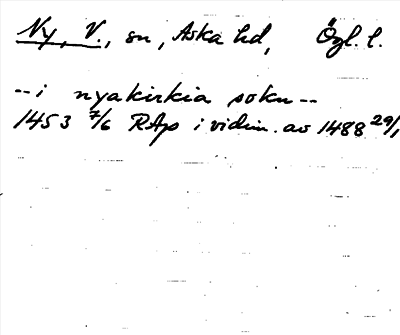 Ny, V., sn, Aska hd, Ögl. l.
--i nyakirkia sokn--
1453 7/6 RAp i vidim. av 1488 29/1